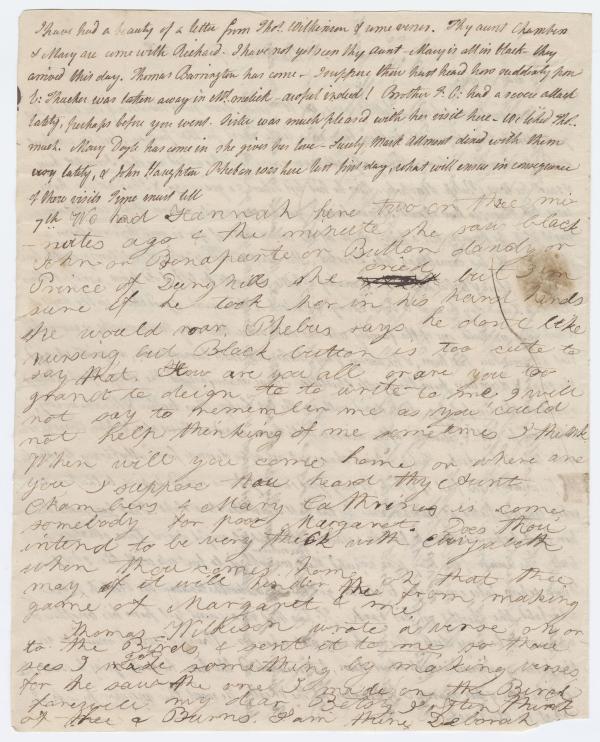 I have had a beauty of a letter from Thos. Wilkinson & some verses. Thy aunt Chambers
& Mary are come with Richard. I have not yet seen thy Aunt - Mary is all in black - they
arrived this day. Thomas Barrington has come - I suppose thou hast heard how suddenly poor
Thacker was taken away in indeed! Brother J. O: had a severe attack
lately, perhaps before you went. Sister was much pleased with her visit here - We liked Thos.
much. Mary Doyle has come in she gives her love - Mark Allment dined with them
very lately, & John Haughton Pheban was here last first day, what will ensue in consequence
of those visits Time must tell
7th We had Hannah here two or thee mi
nutes ago & the minute she saw black
John or Bonaparte or Button dandy or
Prince of Dunghills she cried but I'm
sure if he took her in his hard hands
she would roar, Phebus says he dont like
nursing but Black button is too cute to
say that. How are you all or are you too
grand to deign to to write to me I will
not say to remember me as you could
not help thinking of me sometimes I think
When will you come home or where are
you I suppose thou heard thy Aunt
Chambers & Mary Cathrine is come
somebody for poor Margaret. Does thou
intend to be very thick with Elizabeth
when thou comes home oh that thee
may if it will hinder thee from making
game of Margaret & me
Thomas Wilkison wrote a verse on or
to the Birds & sent it to me so thou
sees I made something by making verses
for he saw the one I made on the Bird
farewell my dear Betsy I often think
of thee & Burns. I am thine Deborah